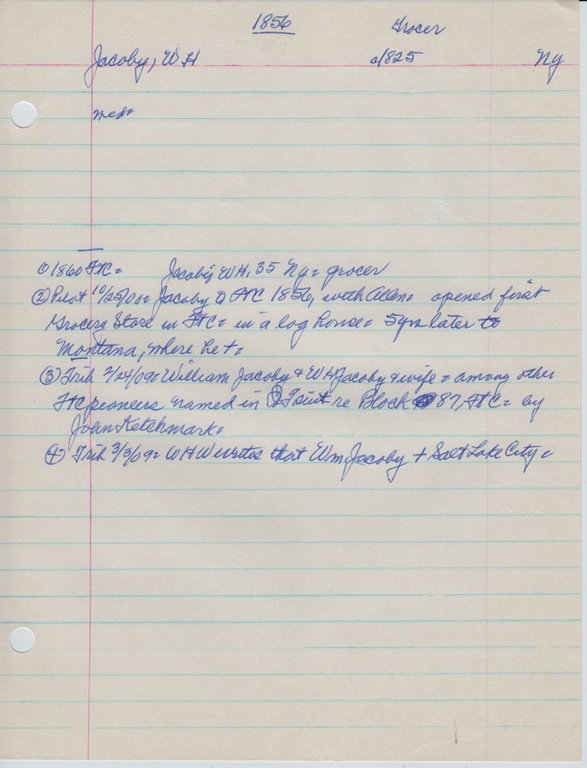 1856 Grocer
Jacoby, WH c/1825 Ny
med=
① 1860 FtC= Jacoby, WH, 35 Ny= grocer
② Pilot 10/25/00= Jacoby to FtC 1856, with Allen= opened first
Grocery Store in FtC= in a log house= 5 yrs later to
Montana, where he +=
③ Trib 2/24/09= William Jacoby & WH Jacoby & wife= among other
FtC pioneers named in re Block 87, FtC= by
John Ketchmark=
④ Trib 3/3/09= WHW writes that Wm Jacoby + Salt Lake City=